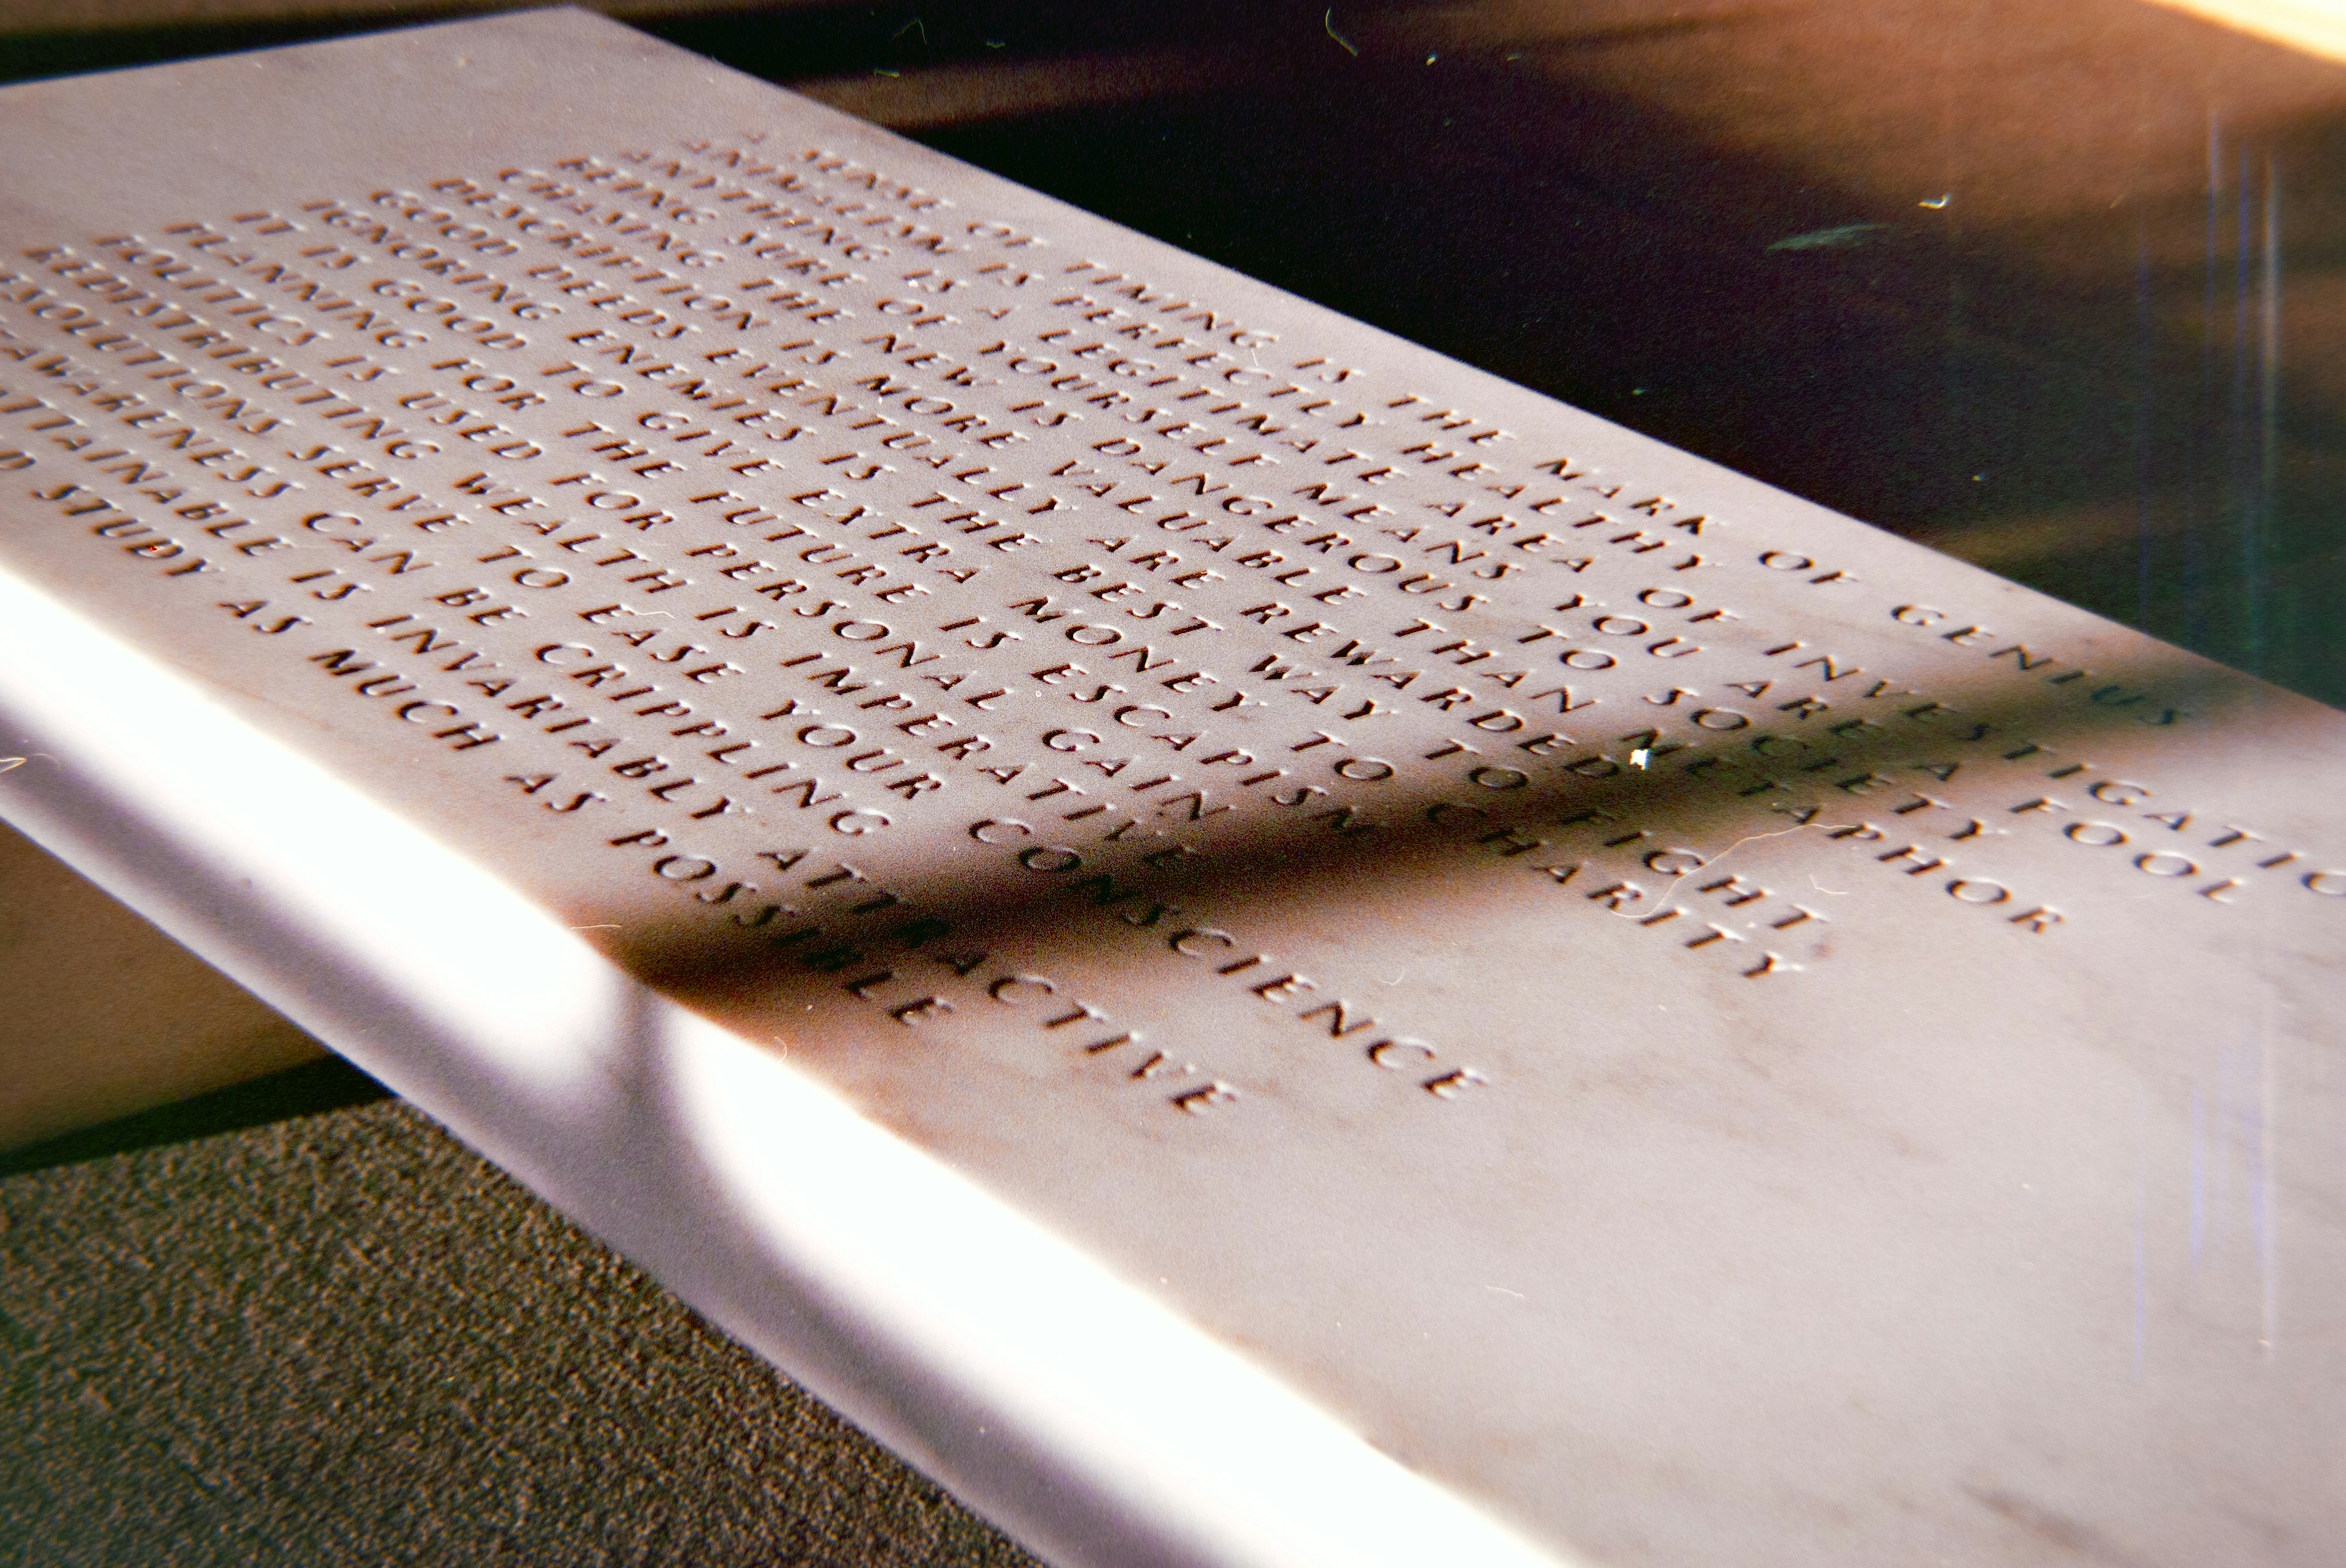 A SENSE OF TIMING IS THE MARK OF GENIUS
ANIMALISM IS PERFECTLY HEALTHY
ANYTHING IS A LEGITIMATE AREA OF INVESTIGATIO
BEING SURE OF YOURSELF MEANS YOU ARE A FOOL
CHASING THE NEW IS DANGEROUS TO SOCIETY
DESCRIPTION IS MORE VALUABLE THAN METAPHOR
GOOD DEEDS EVENTUALLY ARE REWARDED
IGNORING ENEMIES IS THE BEST WAY TO FIGHT
IT IS GOOD TO GIVE EXTRA MONEY TO CHARITY
PLANNING FOR THE FUTURE IS ESCAPISM
POLITICS IS USED FOR PERSONAL GAIN
REDISTRIBUTING WEALTH IS IMPERATIVE
ESOLUTIONS SERVE TO EASE YOUR CONSCIENCE
AWARENESS CAN BE CRIPPLING
ATTAINABLE IS INVARIABLY ATTRACTIVE
D STUDY AS MUCH AS POSSIBLE